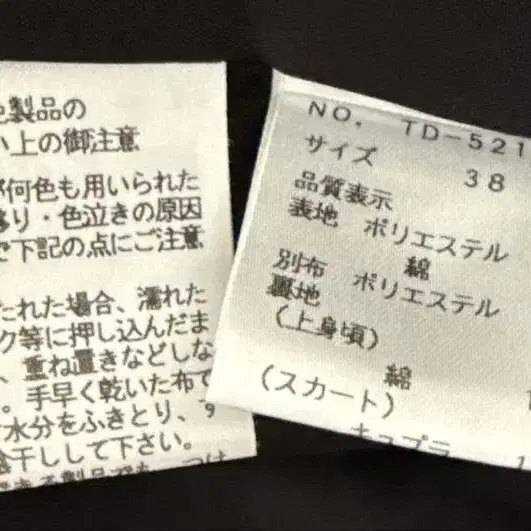 色製品の
い上の御注意
が何色も用いられた
移り・色泣きの原因
で下記の点にご注意
たれた場合、濡れた
ク等に押し込んだま
、重ね置きなどしな
。手早く乾いた布で
水分をふきとり、す
陰干しして下さい。
NO. TD-521
サイズ 38
品質表示
表地 ポリエステル
綿
別布 ポリエステル
裏地
(上身頃)
綿
(スカート)
キュプラ